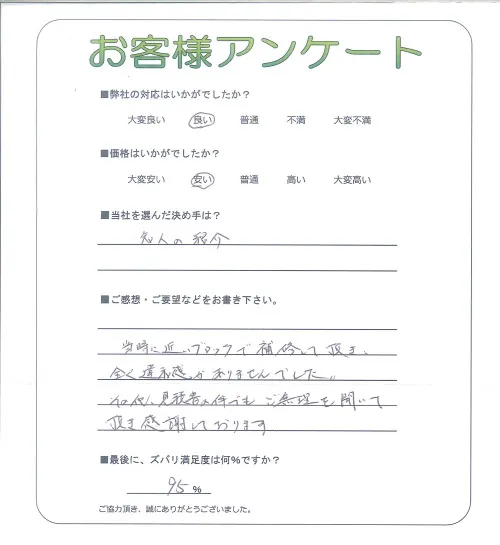 お客様アンケート
■弊社の対応はいかがでしたか？
大変良い 良い 普通 不満 大変不満
■価格はいかがでしたか？
大変安い 安い 普通 高い 大変高い
■当社を選んだ決め手は？
知人の紹介
■ご感想・ご要望などをお書き下さい。
当時に近いブロックで補修して頂き、
全く違和感がありませんでした。
見積書の件でもご無理を聞いて
頂き感謝しております
■最後に、ズバリ満足度は何％ですか？
95 %
ご協力頂き、誠にありがとうございました。